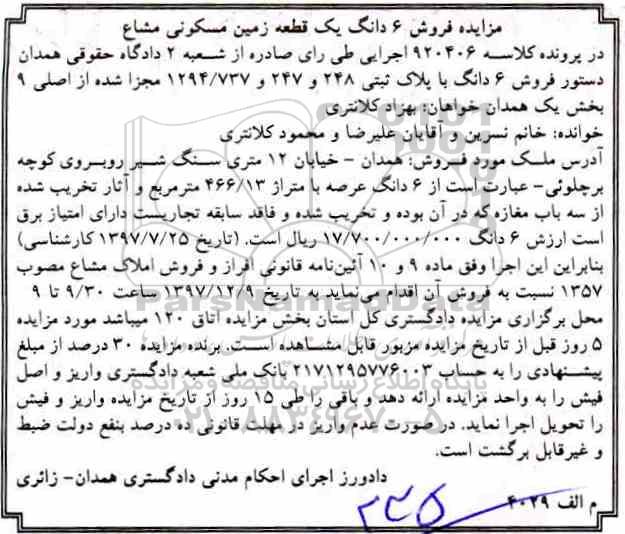 مزایده فروش ۶ دانگ یک قطعه زمین مسکونی مشاع
در پرونده کلاسه ۹۲۰۴۰۶ اجرایی طی رای صادره از شعبه ۲ دادگاه حقوقی همدان
دستور فروش ۶ دانگ با پلاک ثبتی ۲۴۸ و ۲۴۷ و ۱۲۹۴/۷۳۷ مجزا شده از اصلی ۹
بخش یک همدان خواهان: بهزاد کلانتری
خوانده: خانم نسرین و آقایان علیرضا و محمود کلانتری
آدرس ملک مورد فروش: همدان – خیابان ۱۲ متری سنگ شیر روبروی کوچه
برچلوئی- عبارت است از ۶ دانگ عرصه با متراژ ۴۶۶/۱۳ مترمربع و آثار تخریب شده
از سه باب مغازه که در آن بوده و تخریب شده و فاقد سابقه تجاریست دارای امتیاز برق
است ارزش ۶ دانگ ۱۷/۷۰۰/۰۰۰/۰۰۰ ریال است. (تاریخ ۱۳۹۷/۷/۲۵ کارشناسی)
بنابراین این اجرا وفق ماده ۹ و ۱۰ آئین‌نامه قانونی افراز و فروش املاک مشاع مصوب
۱۳۵۷ نسبت به فروش آن اقدام می‌نماید به تاریخ ۱۳۹۷/۱۲/۹ ساعت ۹/۳۰ تا ۹
محل برگزاری مزایده دادگستری کل استان بخش مزایده اتاق ۱۲۰ میباشد مورد مزایده
۵ روز قبل از تاریخ مزایده مزبور قابل مشاهده است. برنده مزایده ۳۰ درصد از مبلغ
پیشنهادی را به حساب ۲۱۷۱۲۹۵۷۷۶۰۰۳ بانک ملی شعبه دادگستری واریز و اصل
فیش را به واحد مزایده ارائه دهد و باقی را طی ۱۵ روز از تاریخ مزایده واریز و فیش
را تحویل اجرا نماید. در صورت عدم واریز در مهلت قانونی ۱۰ درصد بنفع دولت ضبط
و غیرقابل برگشت است.
دادورز اجرای احکام مدنی دادگستری همدان- زائری
م الف ۴۰۲۹
۲۳۵
ParsNamadData
پایگاه اطلاع رسانی مناقصه و مزایده
۰۲۱-۸۸۳۴۹۶۷۰-۵